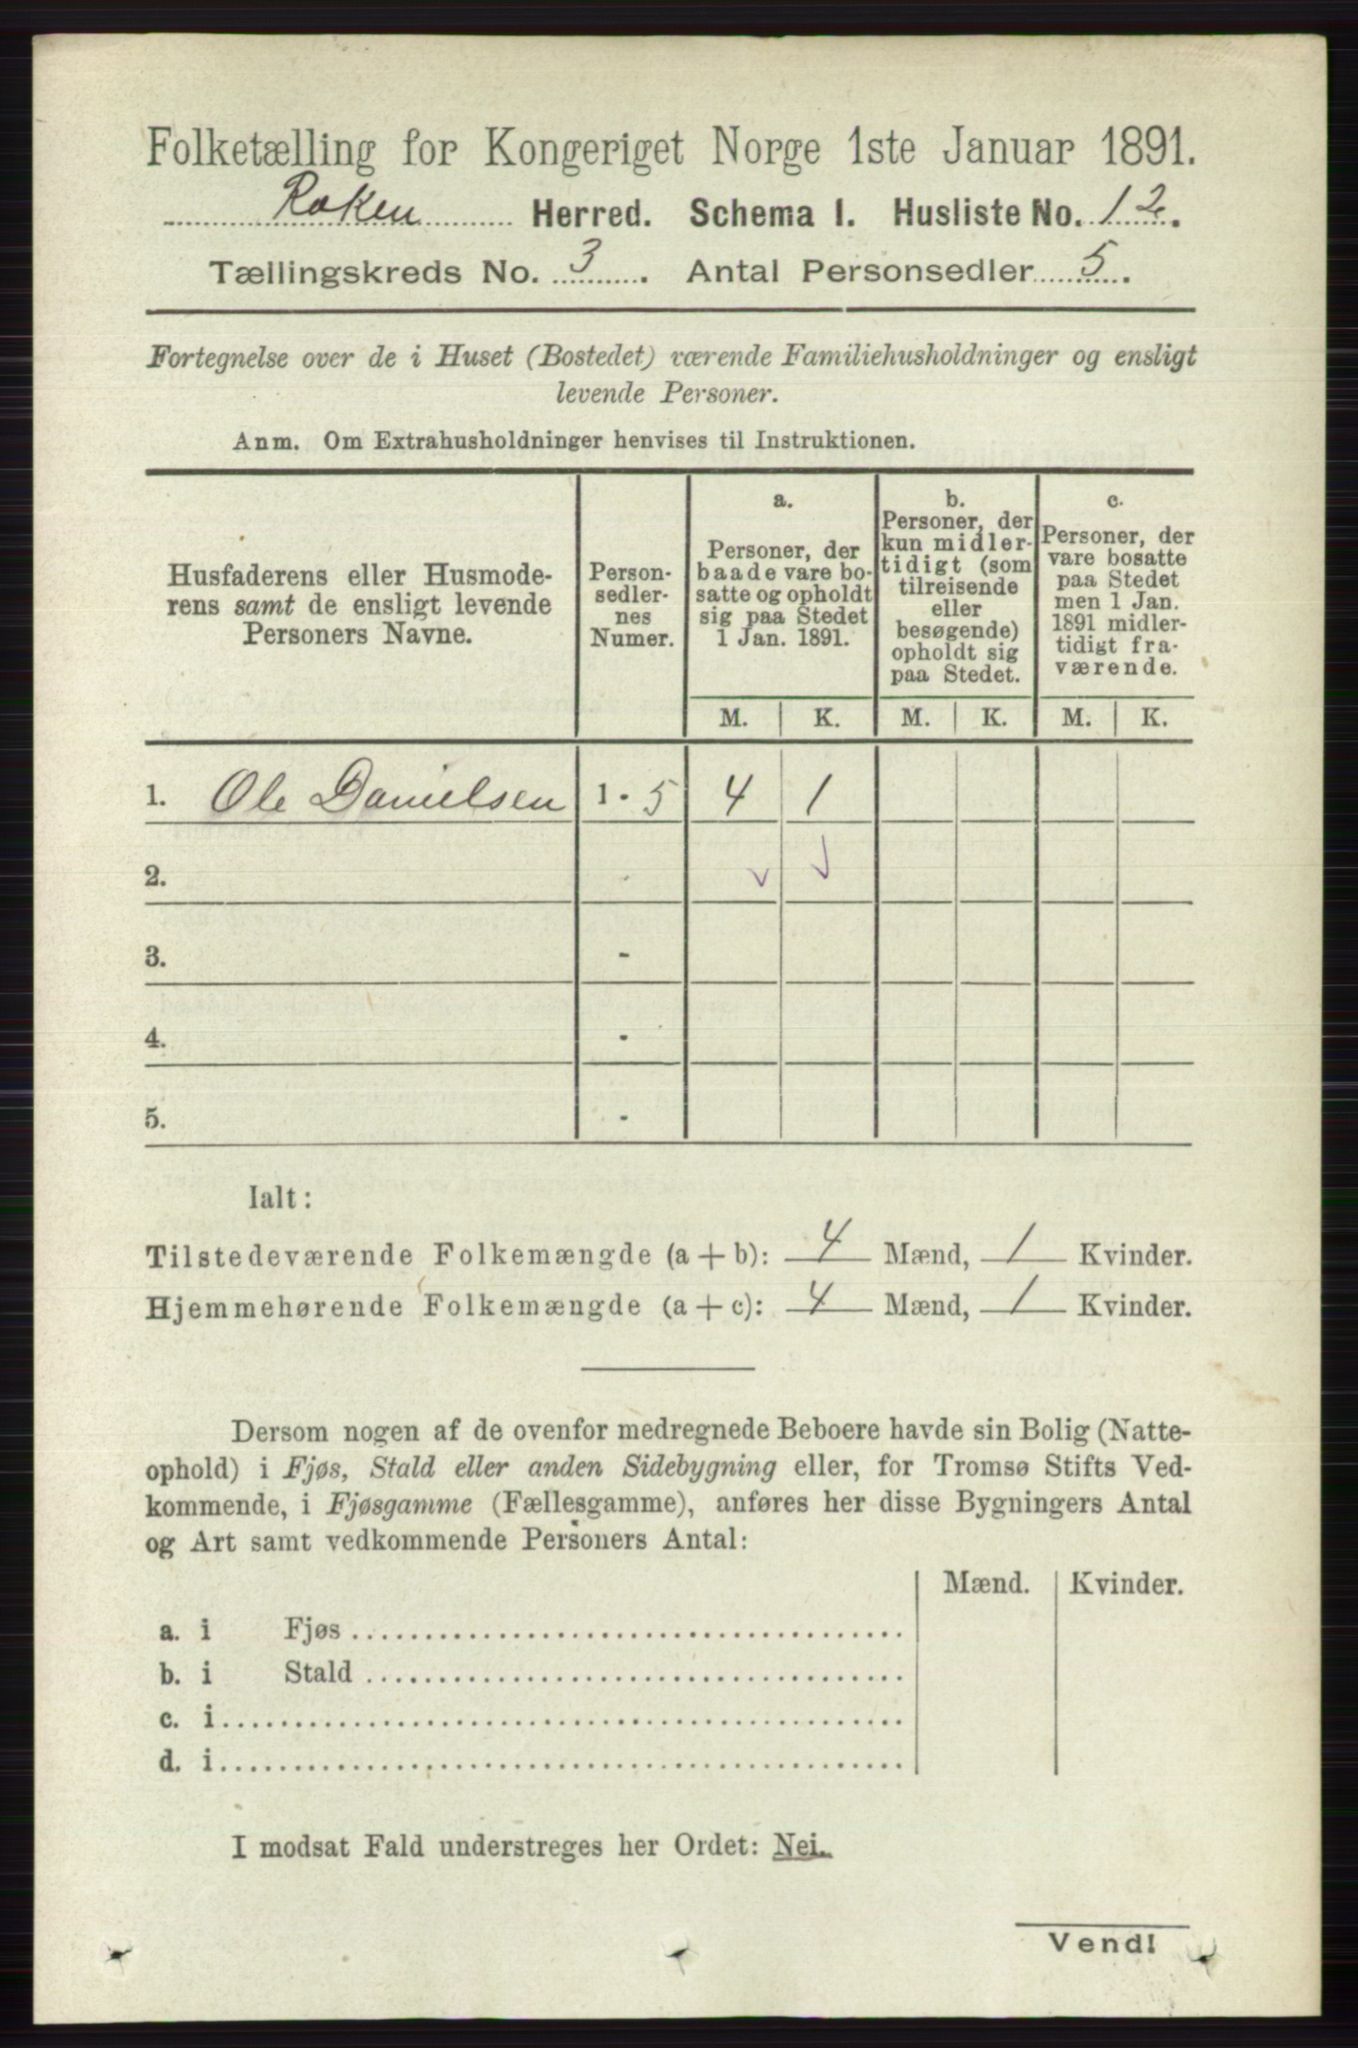 Folketælling for Kongeriget Norge 1ste Januar 1891.
Røken Herred. Schema I. Husliste No. 12.
Tællingskreds No. 3. Antal Personsedler 5.
Fortegnelse over de i Huset (Bostedet) værende Familiehusholdninger og ensligt
levende Personer.
Anm. Om Extrahusholdninger henvises til Instruktionen.
Husfaderens eller Husmode-
rens samt de ensligt levende
Personers Navne.
Person-
sedler-
nes
Numer.
a.
Personer, der
baade vare bo-
satte og opholdt
sig paa Stedet
1 Jan. 1891.
b.
Personer, der
kun midler-
tidigt (som
tilreisende
eller
besøgende)
opholdt sig
paa Stedet.
c.
Personer, der
vare bosatte
paa Stedet
men 1 Jan.
1891 midler-
tidigt fra-
værende.
M. K. M. K. M. K.
1. Ole Danielsen 1 - 5 4 1
2.
3. -
4. -
5. -
Ialt:
Tilstedeværende Folkemængde (a + b): 4 Mænd, 1 Kvinder.
Hjemmehørende Folkemængde (a + c): 4 Mænd, 1 Kvinder.
Dersom nogen af de ovenfor medregnede Beboere havde sin Bolig (Natte-
ophold) i Fjøs, Stald eller anden Sidebygning eller, for Tromsø Stifts Ved-
kommende, i Fjøsgamme (Fællesgamme), anføres her disse Bygningers Antal
og Art samt vedkommende Personers Antal:
Mænd. Kvinder.
a. i Fjøs
b. i Stald
c. i
d. i
I modsat Fald understreges her Ordet: Nei.
Vend!